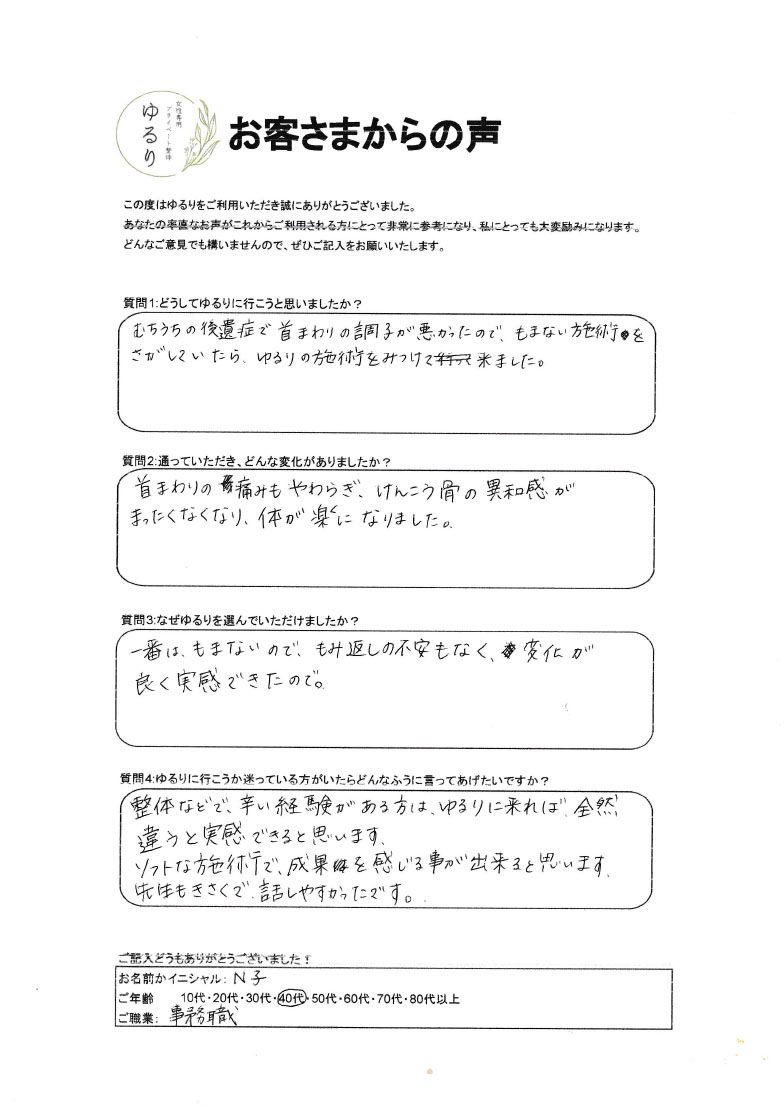 女性専用
プライベート整体
ゆるり
お客さまからの声
この度はゆるりをご利用いただき誠にありがとうございました。
あなたの率直なお声がこれからご利用される方にとって非常に参考になり、私にとっても大変励みになります。
どんなご意見でも構いませんので、ぜひご記入をお願いいたします。
質問1:どうしてゆるりに行こうと思いましたか?
むちうちの後遺症で首まわりの調子が悪かったので、もまない施術を
さがしていたら、ゆるりの施術をみつけて来ました。
質問2:通っていただき、どんな変化がありましたか?
首まわりの痛みもやわらぎ、けんこう骨の異和感が
まったくなくなり、体が楽になりました。
質問3:なぜゆるりを選んでいただけましたか?
一番は、もまないので、もみ返しの不安もなく、変化が
良く実感できたので。
質問4:ゆるりに行こうか迷っている方がいたらどんなふうに言ってあげたいですか?
整体などで、辛い経験がある方は、ゆるりに来れば、全然
違うと実感できると思います。
ソフトな施術で、成果を感じる事が出来ると思います。
先生もきさくで、話しやすかったです。
ご記入どうもありがとうございました!
お名前かイニシャル: N子
ご年齢 10代・20代・30代・40代・50代・60代・70代・80代以上
ご職業: 事務職